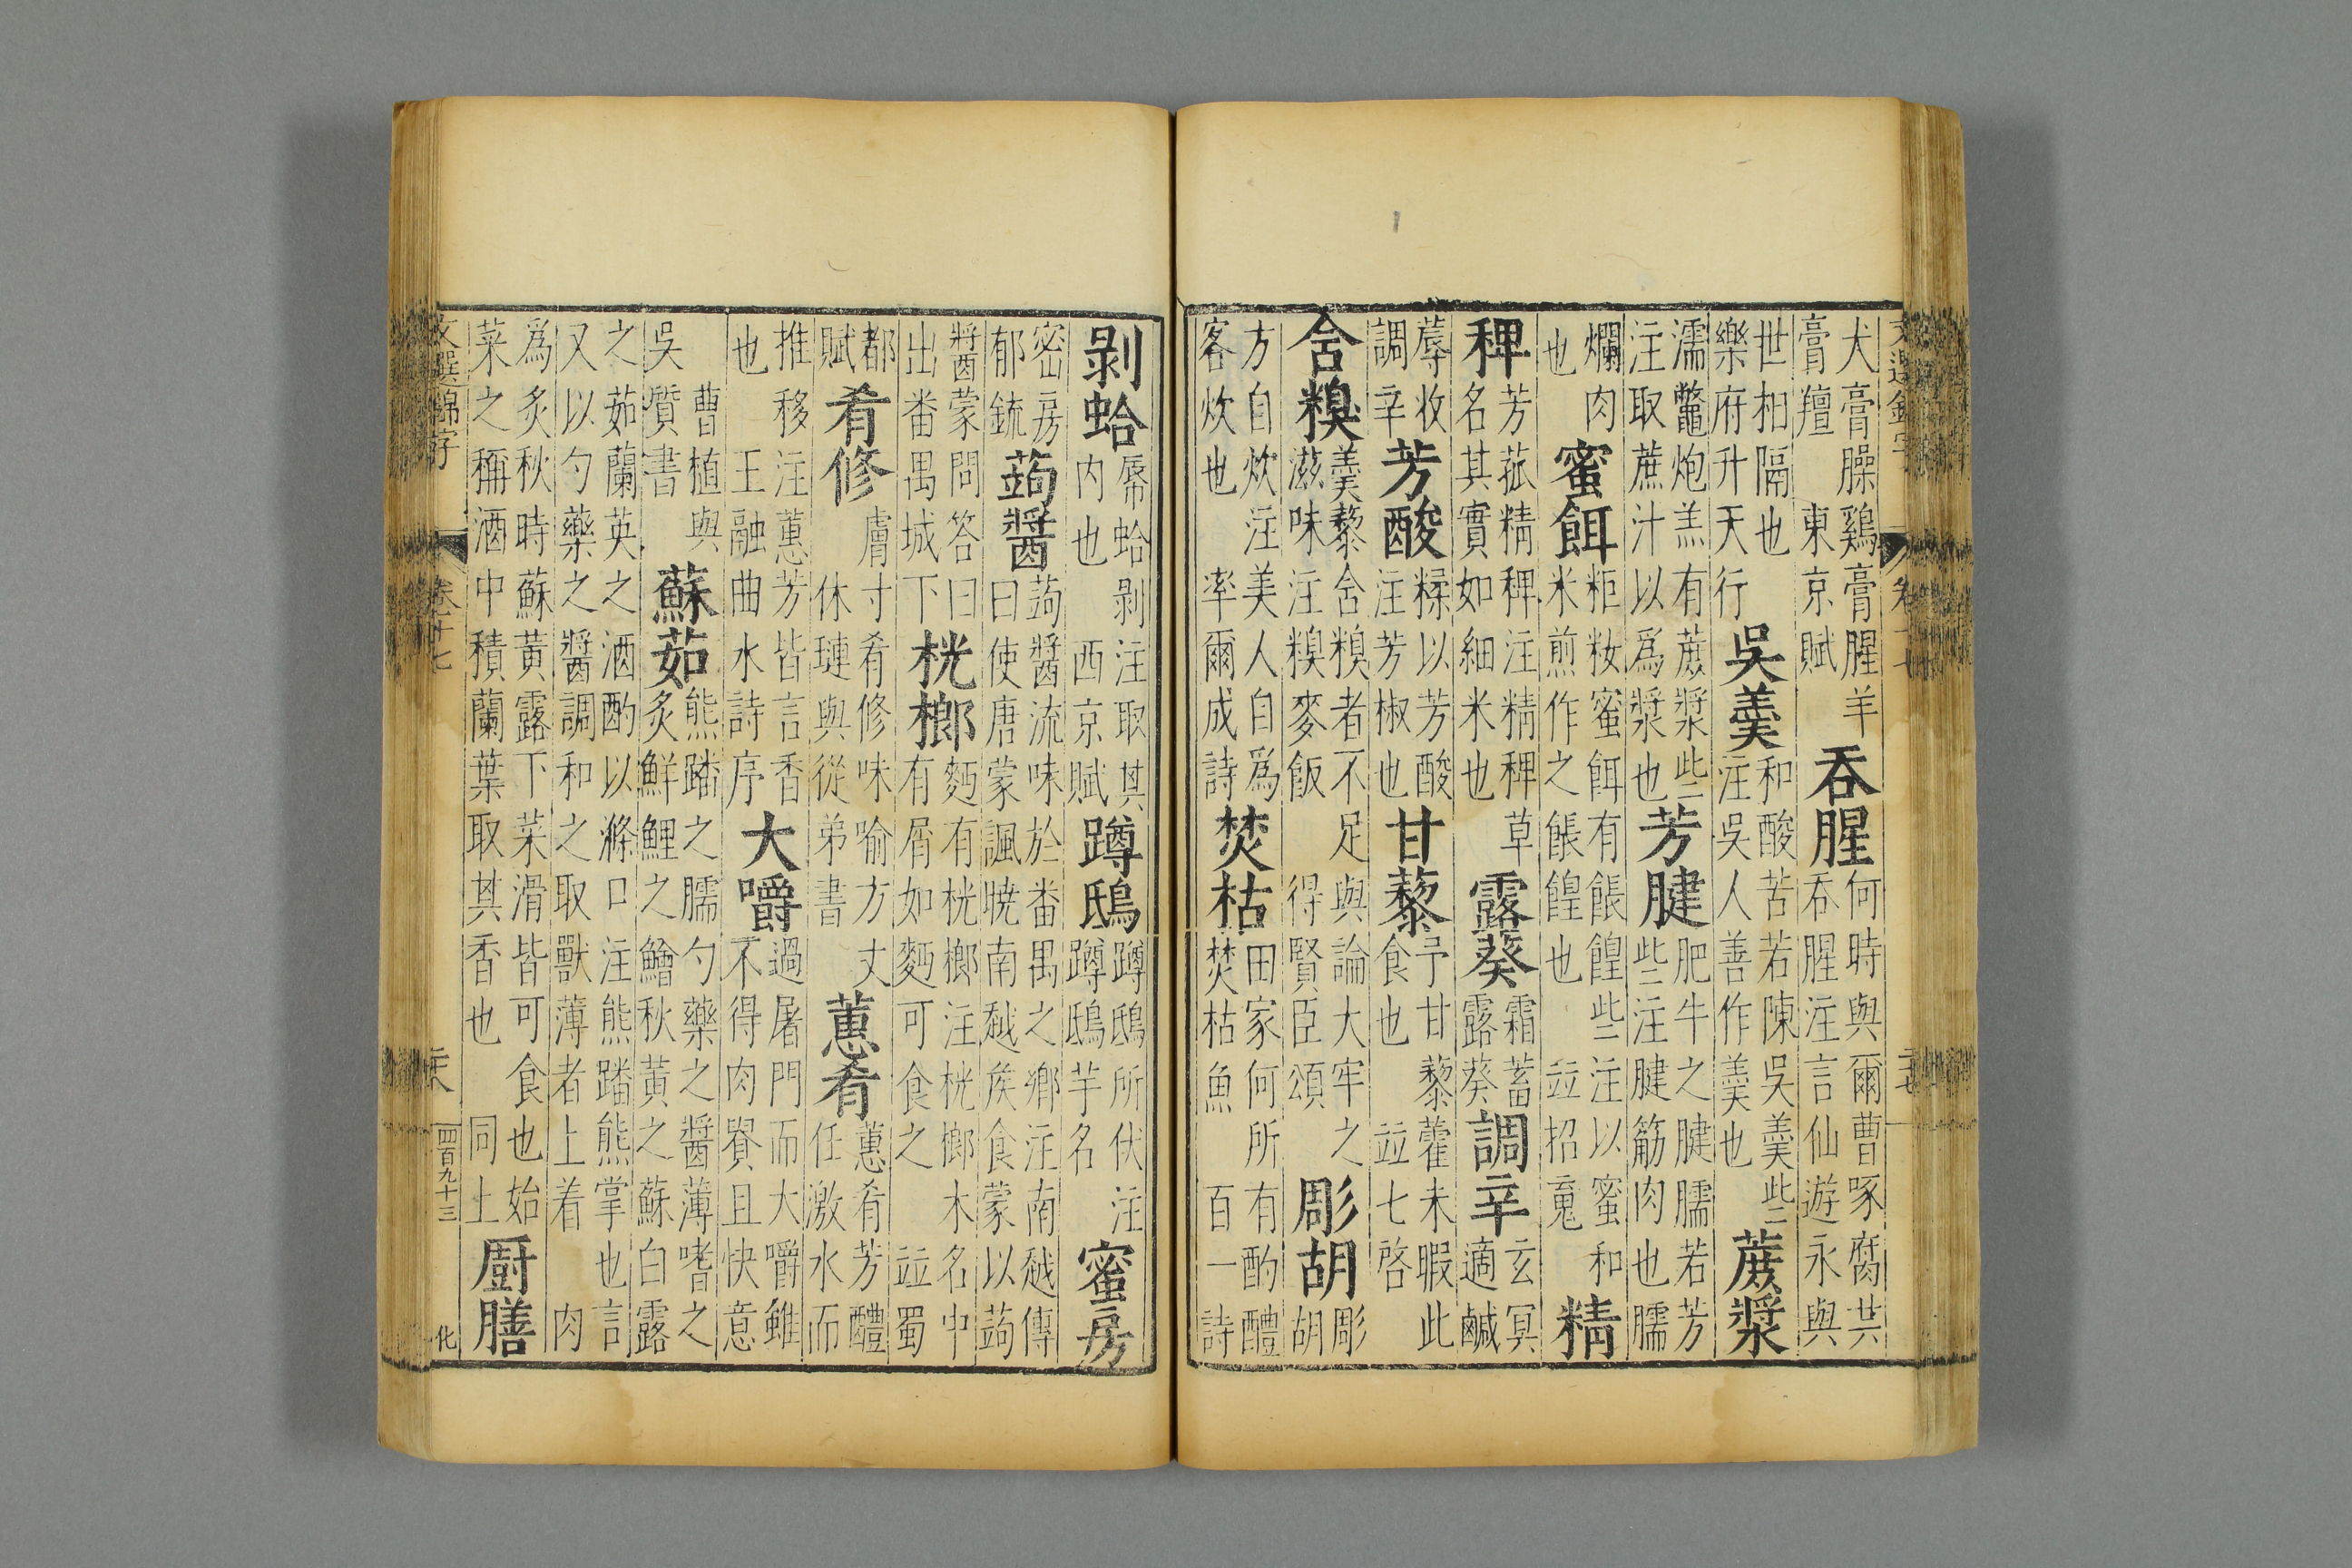 犬膏臊鷄膏腥羊
膏羶 東京賦
吞腥
何時與爾曹啄腐共
吞腥注言仙遊永與
世相隔也
樂府升天行
吳羹
和酸苦若陳吳羹些
注吳人善作羹也
蔗漿
濡鼈炮羔有蔗漿些
注取蔗汁以爲漿也
芳腱
肥牛之腱臑若芳
些注腱筋肉也臑
爛肉
也
蜜餌
粔籹蜜餌有餦餭些注以蜜和
米煎作之餦餭也 竝招䰟
精
稗
芳菰精稗注精稗草
名其實如細米也
露葵
霜蓄
露葵
調辛
玄冥
適鹹
蓐收
調辛
芳酸
糅以芳酸
注芳椒也
甘藜
予甘藜藿未暇此
食也 竝七啓
含糗
羹藜含糗者不足與論大牢之
滋味注糗麥飯 得賢臣頌
彫胡
彫
胡
方自炊注美人自爲
客炊也 率爾成詩
焚枯
田家何所有酌醴
焚枯魚 百一詩
剥蛤
蜃蛤剥注取其
内也 西京賦
蹲鴟
蹲鴟所伏注
蹲鴟芋名
蜜房
密房
郁毓
蒟醬
蒟醬流味於番禺之鄉注南越傳
曰使唐蒙諷曉南越矦食蒙以蒟
醬蒙問答曰
出番禺城下
桄榔
麪有桄榔注桄榔木名中
有屑如麪可食之 竝蜀
都
賦
肴修
膚寸肴修味喻方丈
休璉與從弟書
蕙肴
蕙肴芳醴
任激水而
推移注蕙芳皆言香
也 王融曲水詩序
大嚼
過屠門而大嚼雖
不得肉貴且快意
曹植與
吳質書
蘇茹
熊蹯之臑勺藥之醬薄嗜之
炙鮮鯉之鱠秋黄之蘇白露
之茹蘭英之酒酌以滌口注熊蹯熊掌也言
又以勺藥之醬調和之取獸薄者上着 肉
爲炙秋時蘇黄露下菜滑皆可食也始
菜之稱酒中積蘭葉取其香也 同上
厨膳
文選錦字
卷十七
二十八
四百九十三
化